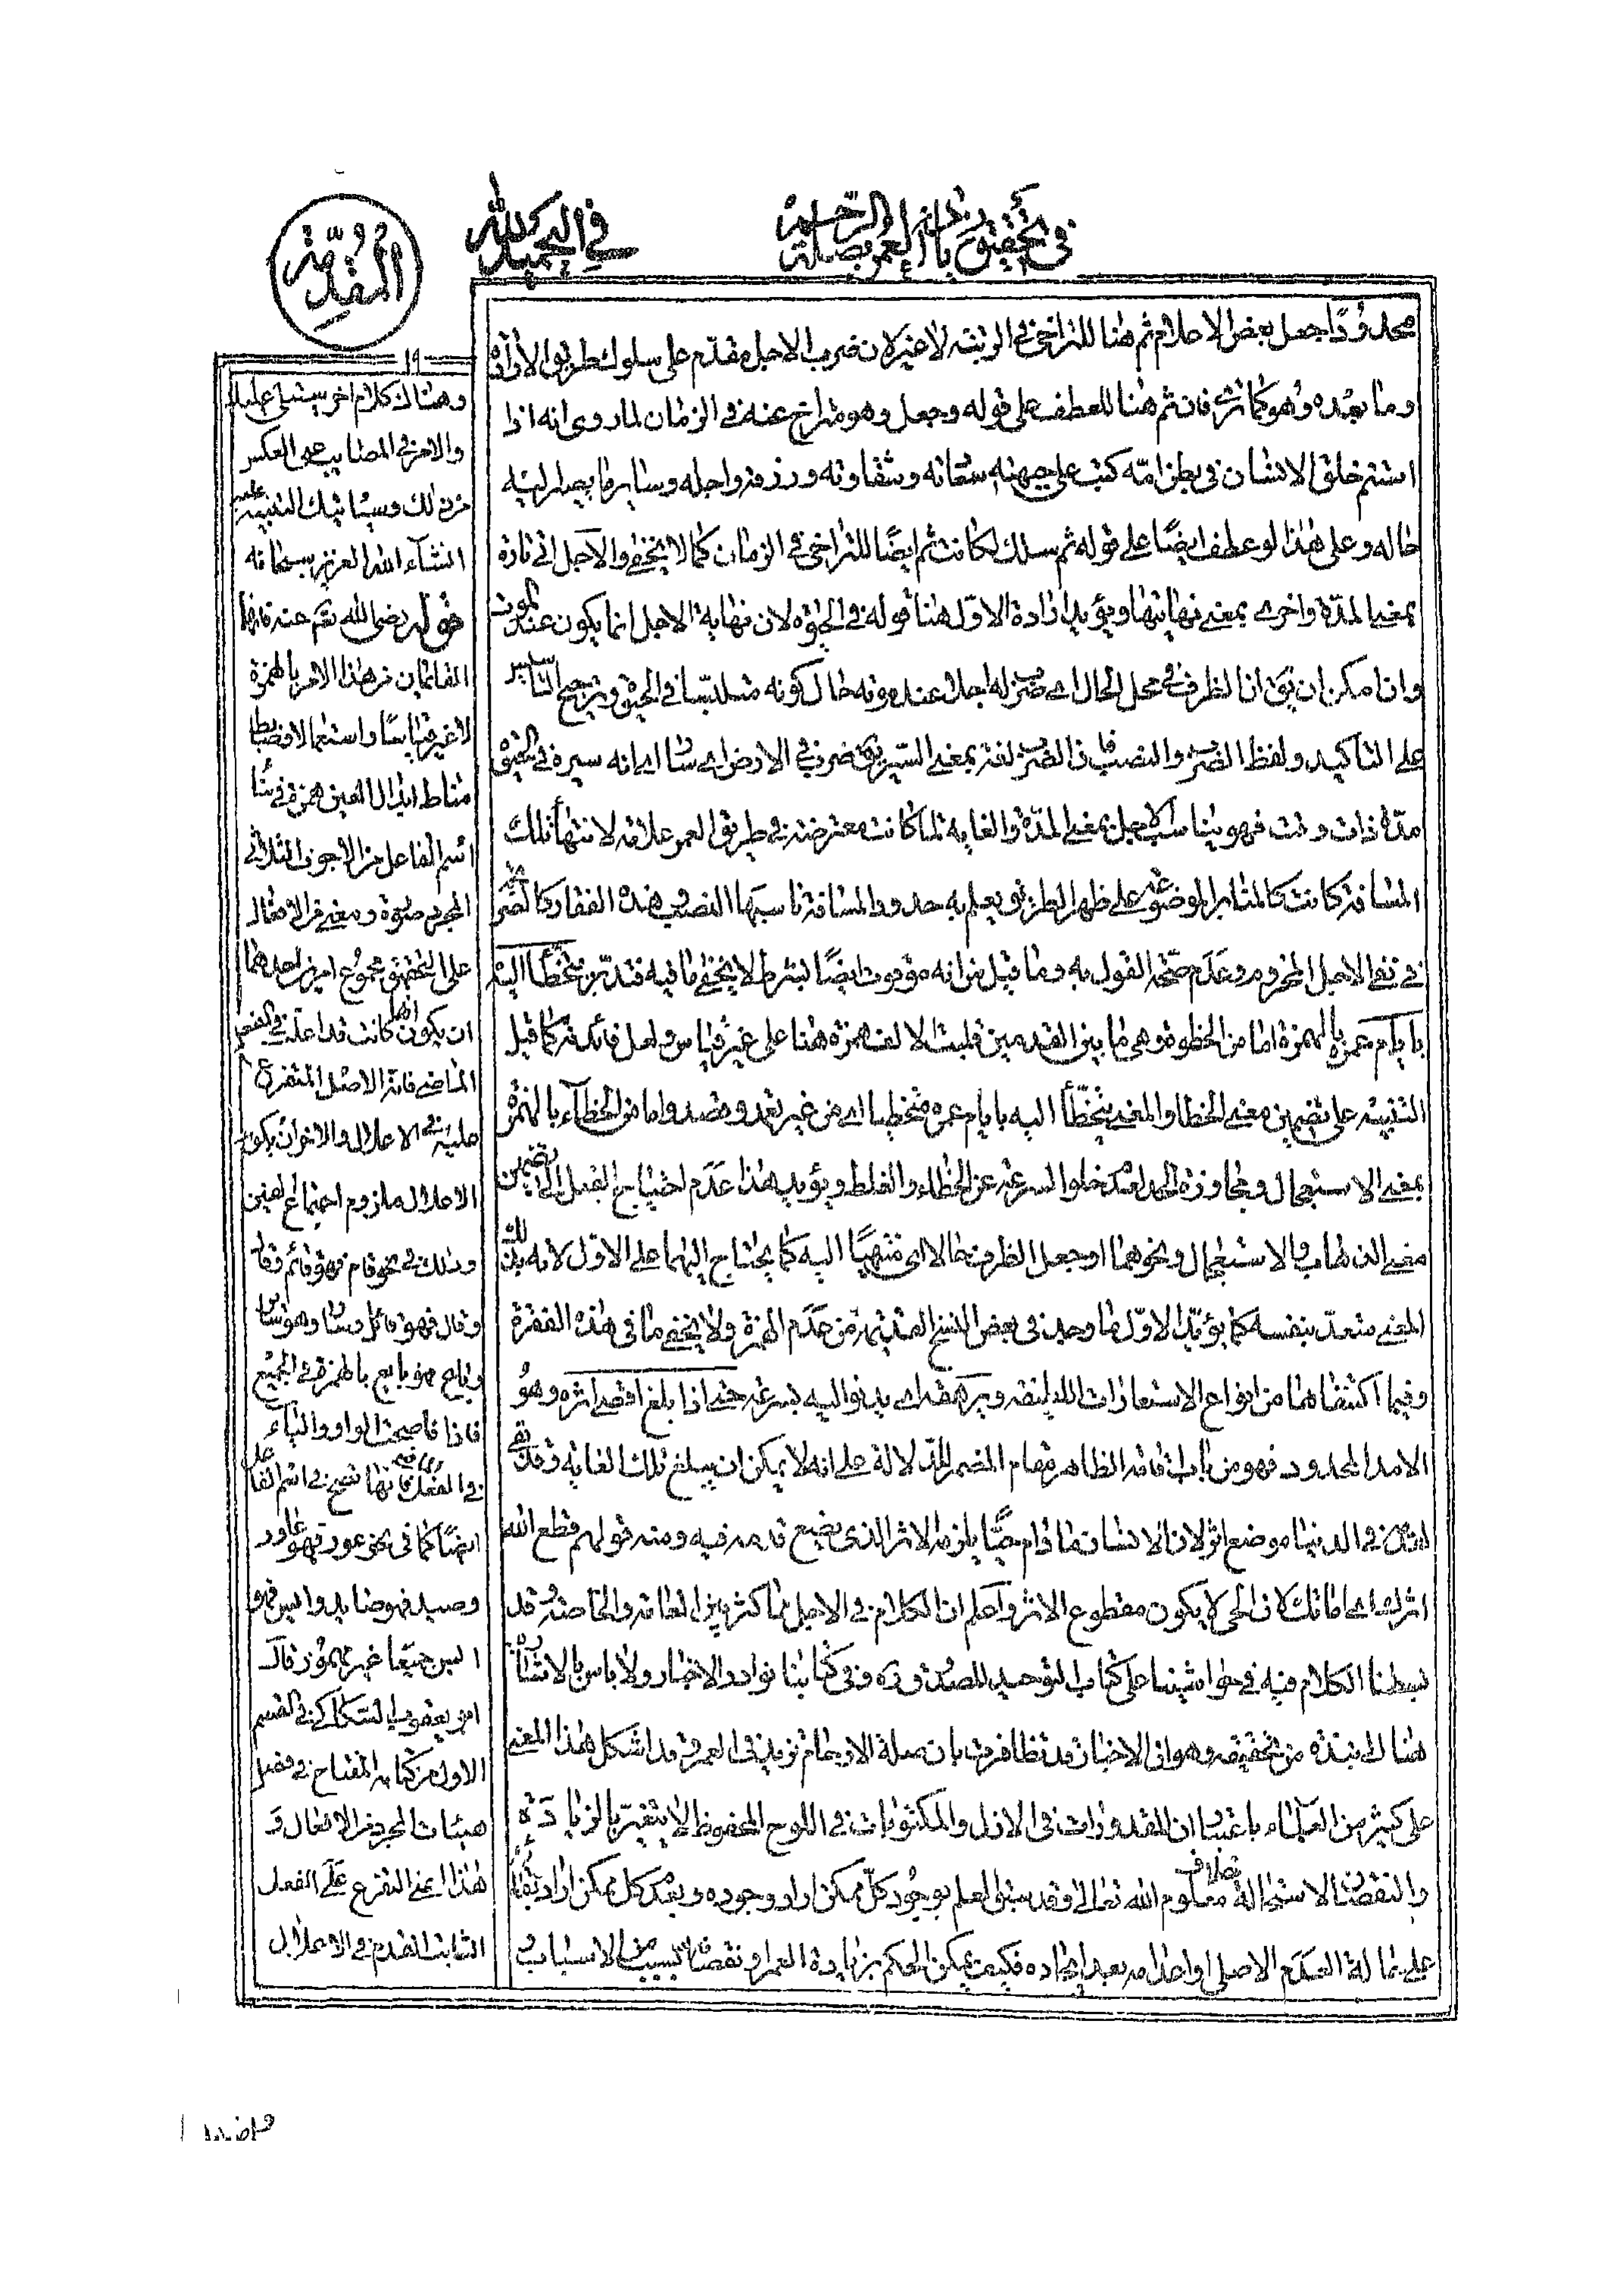 في تحقيق زيادة العمر بصلة الرحم
في التحميد لله
المقدمة
محدودًا جعل بعض الاعلام ثم هنا للتراخي في الرتبة لا غير لان ضرب الاجل مقدم على سلوك طريق الارادة
وما بعده وهو كما ترى فان ثم هنا للعطف على قوله وجعل وهو متراخ عنه في الزمان لما روى انه اذا
استتم خلق الانسان في بطن امه كتب على جبهته سعادته وشقاوته ورزقه واجله وساير ما يصار اليه
حاله وعلى هذا لو عطف ايضًا على قوله ثم سلك لكانت ثم ايضًا للتراخي في الزمان كما لا يخفى والاجل اتى تارة
بمعنى المدة واخرى بمعنى نهايتها ويؤيد ارادة الاول هنا قوله في الحيوة لان نهاية الاجل انما يكون عند الموت
وان امكن ان يق ان الظرف في محل الحال اى ضرب له اجلا عند موته حال كونه متلبسا في الحيوة وترجيح التاسيس
على التاكيد ولفظ الضرب والنصب فان الضرب لغة بمعنى السير يق ضرب في الارض اى سار
مدة ذات وقت فهو يناسب الاجل بمعنى المدة والغاية لما كانت معترضة في طريق العمر علامة لانتهاء تلك
المسافة كانت كالمنار الموضوعة على ظهر الطريق ويعلم به حدود المسافة ناسبها النصب وهذه الفقار كالضر
في نفى الاجل المخروم وعدم صحة القول به وما قيل من انه موقوت ايضًا بشرط لا يخفى ما فيه فتدبر يتخطأ اليه
بايام عمره بالهمزة اما من الخطوة وهى ما بين القدمين قلبت الالف همزة هنا على غير قياس ولعل فائدته كما قيل
التنبيه على تضمين معنى الخطا والمعنى يتخطأ اليه بايام عمره متخطيا اى من غير تعمد وقصد واما من الخطاء بالهمزة
بمعنى الاستعجال ومجاوزة الحد لعدم خلوا السرعة عن الخطاء والغلط ويؤيد هذا عدم احتياج الفعل الى تضمين
معنى الذهاب والاستعجال ونحوهما او جعل الظرف حالا اى منتهيًا اليه كما يحتاج اليهما على الاول لانه بذلك
المعنى متعد بنفسه كما يؤيد الاول ما وجد في بعض النسخ القديمة من عدم الهمزة ولا يخفى ما في هذه الفقرة
وفيما اكتنفاها من انواع الاستعارات اللطيفة ويرهقه اى يدنو اليه بسرعة حتى اذا بلغ اقصى اثره وهو
الامد المحدود فهو من باب اقامة الظاهر مقام المضمر للدلالة على انه لا يمكن ان يبلغ تلك الغاية وقد بقى
لاثره في الدنيا موضع اثر لان الانسان ما دام حيًّا يلزمه الاثر الذى يضع قدمه فيه ومنه قولهم قطع الله
اثره اى اماتك لان الحي لا يكون مقطوع الاثر واعلم ان الكلام في الاجل مما كثر بين العامة والخاصة وقد
بسطنا الكلام فيه في حواشينا على كتاب التوحيد للصدوق ره وفي كتابنا نوادر الاخبار ولا باس بالاشارة
هنا الى نبذة من تحقيقه وهو ان الاخبار قد تظافرت بان صلة الارحام تزيد في العمر وقد اشكل هذا المعنى
على كثير من العلماء باعتبار ان المقدورات في الازل والمكتوبات في اللوح المحفوظ لا يتغير بالزيادة
والنقصان لاستحالة خلاف معلوم الله تعالى وقد سبق العلم بوجود كل ممكن اراد وجوده وبعدم كل ممكن اراد بقائه
على حالة العدم الاصلى او اعدامه بعد ايجاده فكيف يمكن الحكم بزيادة العمر او نقصانه بسبب من الاسباب و
١٩
وهناك كلام اخر يبتنى عليه
والامر في المصايب على العكس
من ذلك وسياتيك التنبيه عليه
انشاء الله العزيز سبحانه
قوله رضى الله تعم عنه قائمًا
القائمان من هذا الامر بالهمزة
لا غير قياسًا واستعمالا وضابط
مناط ابدال العين همزة في بناء
اسم الفاعل من الاجوف الثلاثي
المجرد صورة ومعنى من الافعال
على التحقيق مجموع امرين احدهما
ان يكون كانت قد اعلت في الفعل
الماضي فانه الاصل المتفرع
عليه في الاعلال والاخر ان يكون
الاعلال ملزوم اجتماع العين
وذلك في نحو قام فهو قائم وقا
وقال فهو قائل وسار وهو سائر
وبايع فهو بايع بالهمزة في الجميع
فاذا ما صحت الواو والياء
في الفعل الماضي فانها تصح في اسم الفاعل
ايضًا كما في نحو عور فهو عاور
وصيد فهو صايد وايس فهو
ايس جميعًا غير مهموز قال
ابو يعقوب السكاكى في القسم
الاول من كتابه المفتاح في فصل
هيئات المجرد من الافعال و
هذا اعنى التفرع على الفعل
الثابت القدم في الاعلال